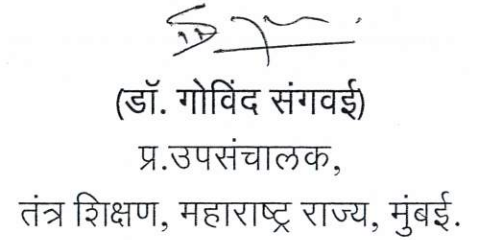 (डॉ. गोविंद संगवई)
प्र.उपसंचालक,
तंत्र शिक्षण, महाराष्ट्र राज्य, मुंबई.